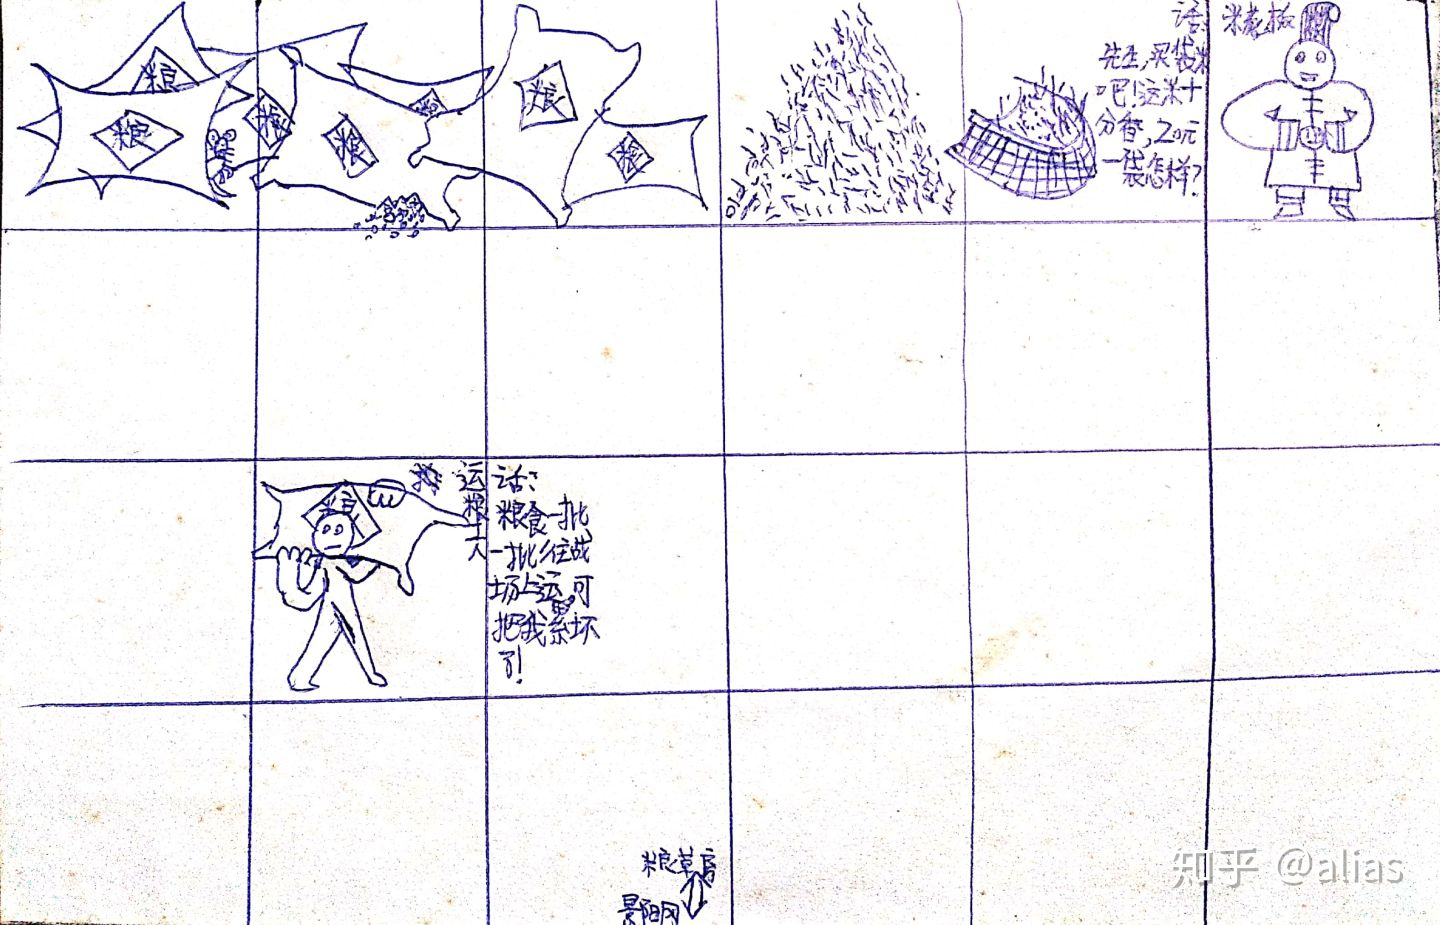 粮
粮
粮
粮
粮
粮
话:
先生,买袋米
吧!这米十
分香,20元
一袋怎样?
粮
运粮工人
话:
粮食一批
一批往战
场上运,可
把我累坏
了!
粮草房
景阳冈
知乎 @alias